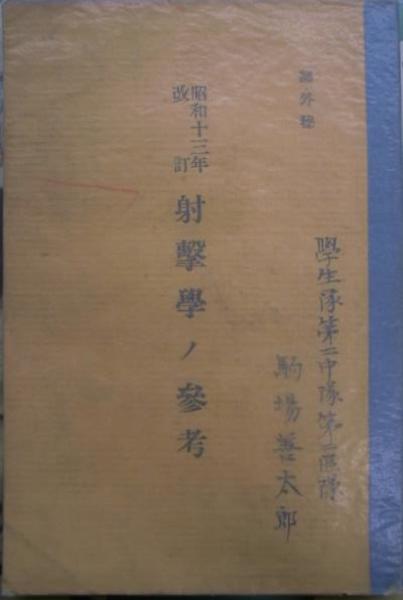 部外秘
學生隊第二中隊第二區隊
駒場善太郎
昭和十三年
改訂
射擊學ノ參考